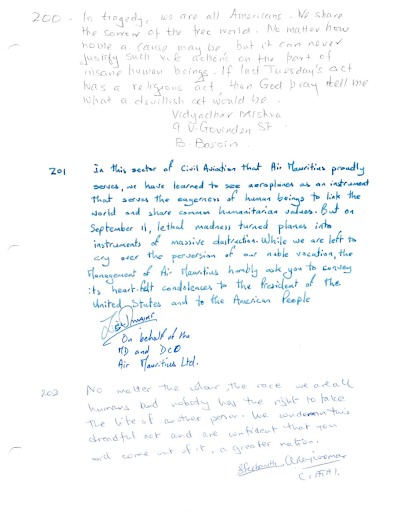 200. In tragedy, we are all Americans. We share
the sorrow of the free world. No matter how
noble a cause may be, but it can never
justify such vile action on the part of
insane human beings. If last Tuesday's act
was a religious act, then God pray tell me
what a devilish act would be.
Vidyadhar Mishra
9 V. Govinden St
B. Bassin.
201 In this sector of Civil Aviation that Air Mauritius proudly
serves, we have learned to see aeroplanes as an instrument
that serves the eagerness of human beings to link the
world and share common humanitarian values. But on
September 11, lethal madness turned planes into
instruments of massive destruction. While we are left to
cry over the perversion of our noble vocation, the
Management of Air Mauritius humbly ask you to convey
its heart-felt condolences to the President of the
United States and to the American People
On behalf of the
MD and DCEO
Air Mauritius Ltd.
202 No matter the colour, the race we are all
humans and nobody has the right to take
the life of another person. We condemn this
dreadful act and are confident that you
will come out of it, a greater nation.